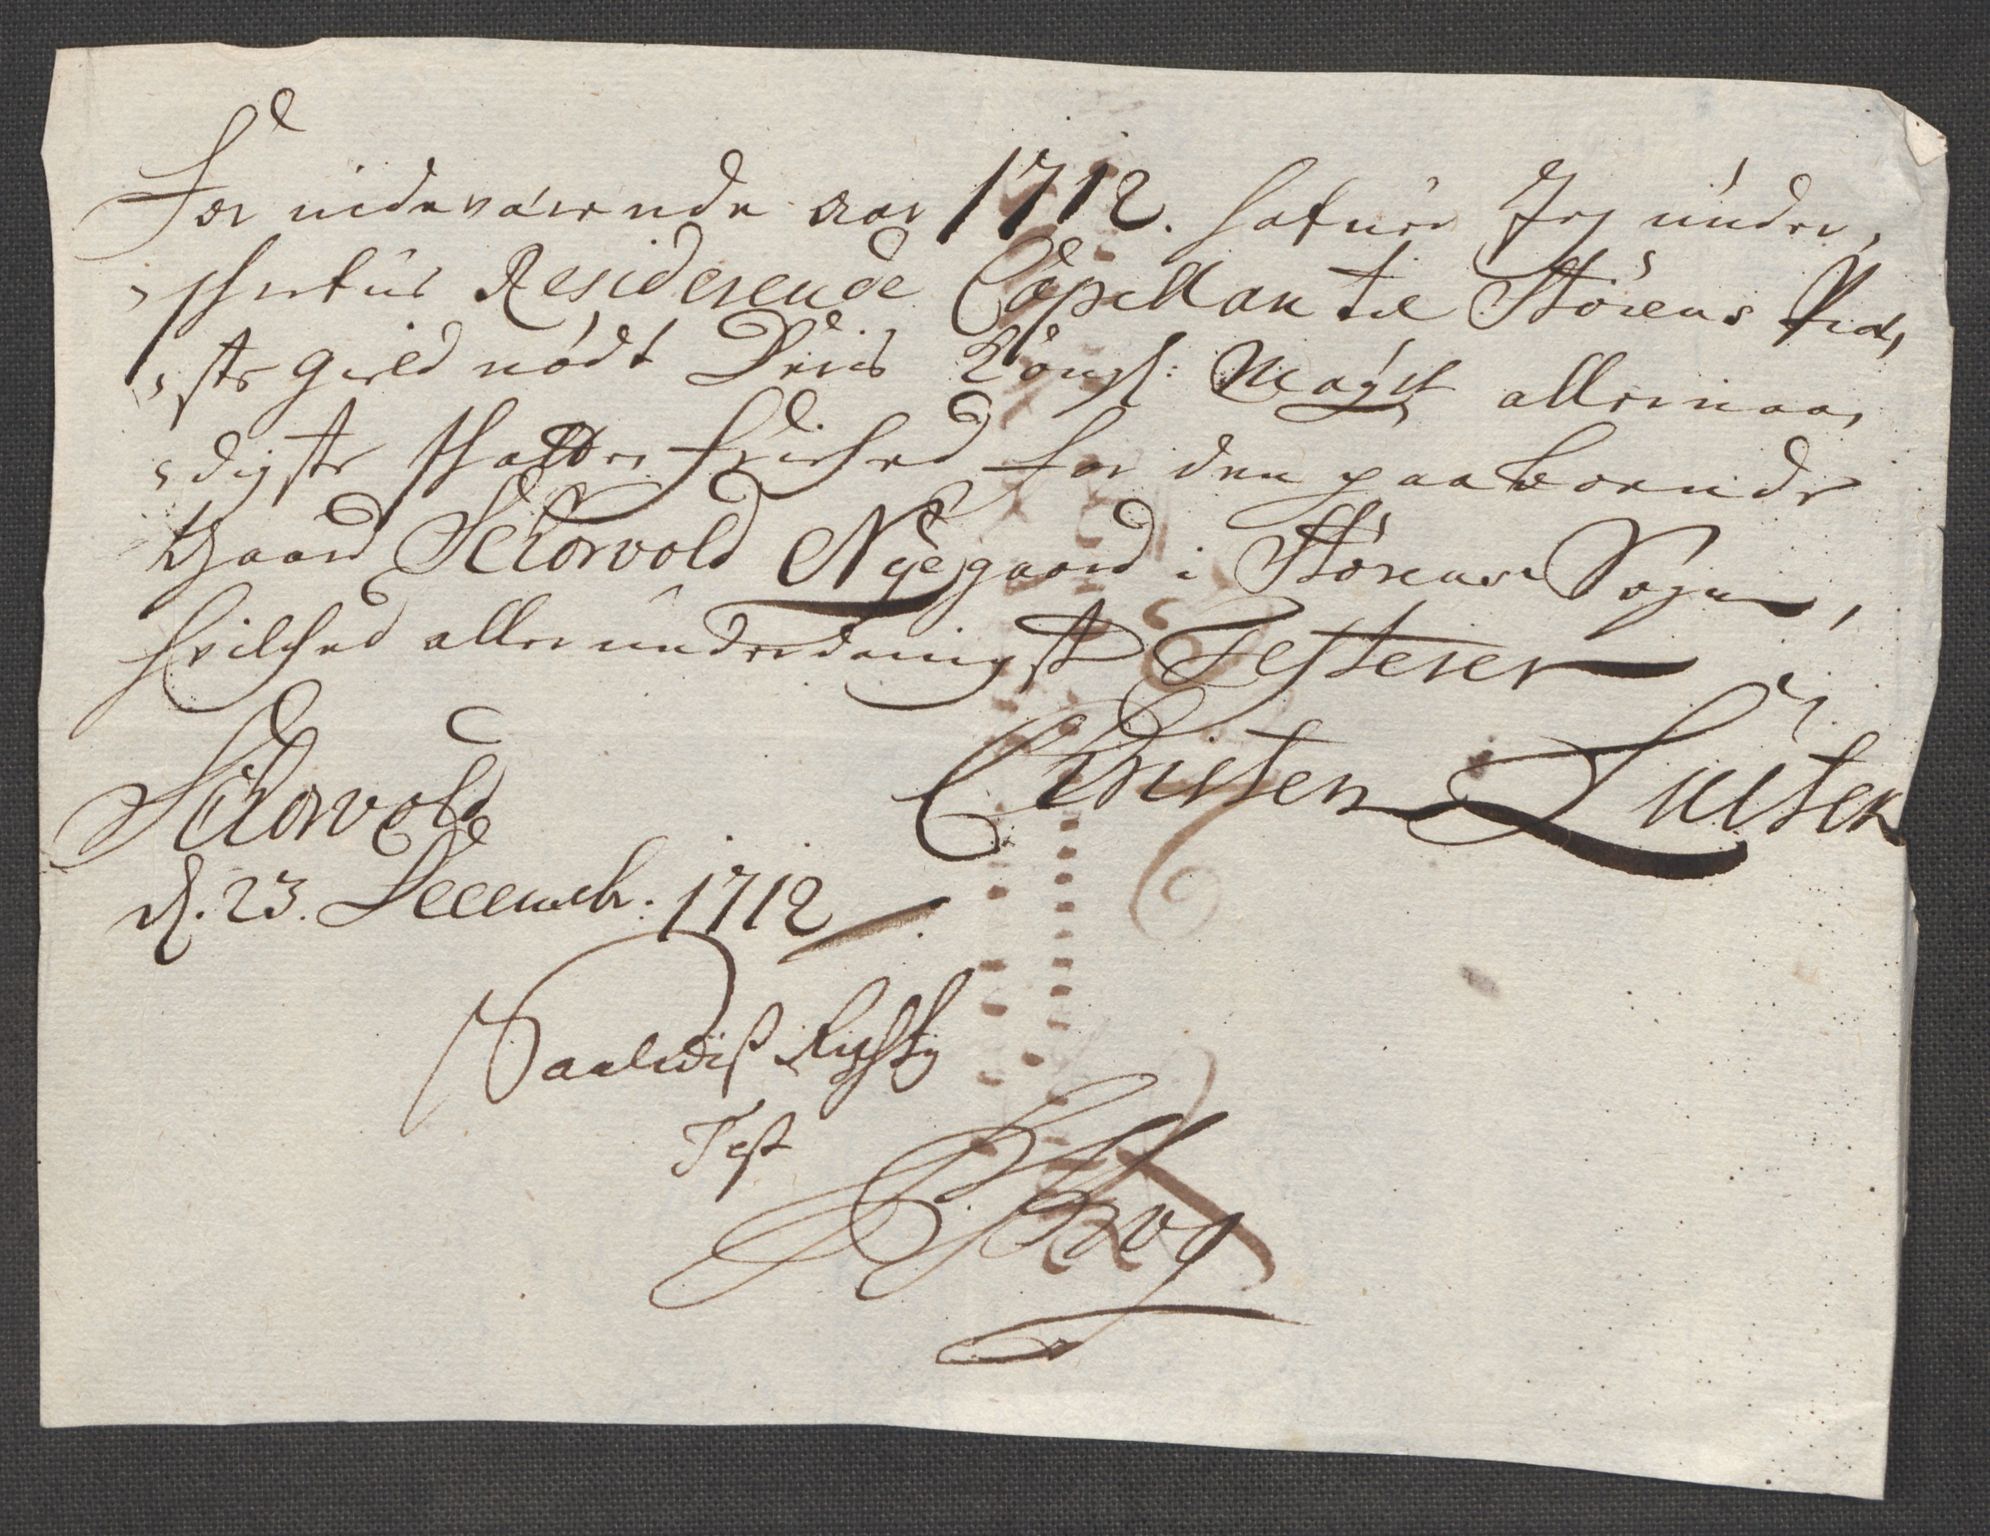 For indeværende aar 1712. hafuer Jeg under,
skrefuene Residerende Capellan til Störens Præ,
ste gield nödt Deris Kongl: Mayst allernaa,
digste Skatter frihed for den paaboende
gaard Schorvold Nyegaard i Störens Sogn,
hvilched allerunderdanigst Testerer
Christen Luitsen
Schorvold
d. 23. Decemb. 1712
Saaledis Rigtig
Test